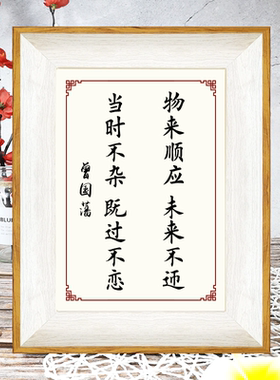 物来顺应 未来不迎
当时不杂 既过不恋
曾国藩